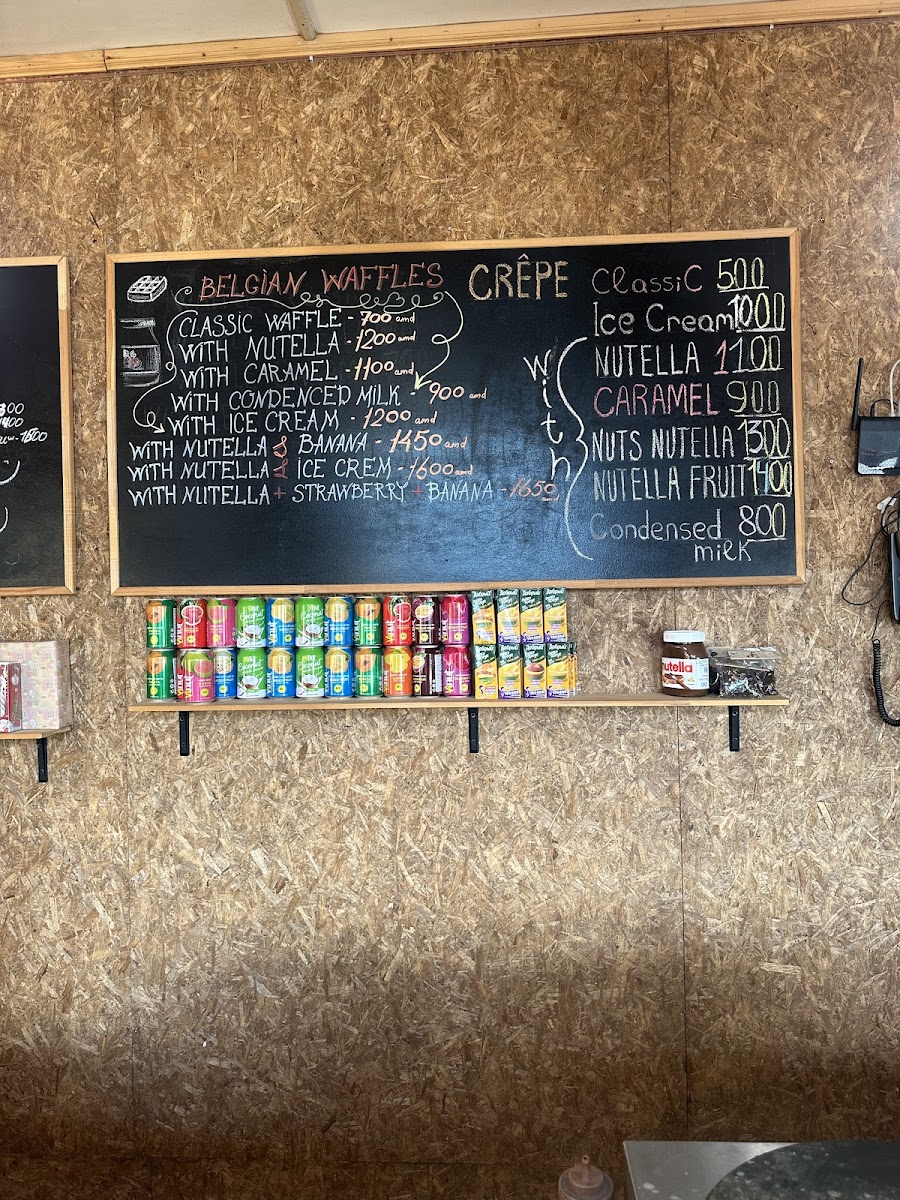 BELGIAN WAFFLES
CLASSIC WAFFLE - 700 amd
WITH NUTELLA - 1200 amd
WITH CARAMEL - 1100 amd
WITH CONDENCED MILK - 900 amd
WITH ICE CREAM - 1200 amd
WITH NUTELLA & BANANA - 1450 amd
WITH NUTELLA & ICE CREM - 1600 amd
WITH NUTELLA + STRAWBERRY + BANANA - 1650 amd
CRÊPE
Classic 500
with
Ice Cream 1000
NUTELLA 1100
CARAMEL 900
NUTS NUTELLA 1300
NUTELLA FRUIT 1400
Condensed 800
milk
Coconut
Coconut
nutella